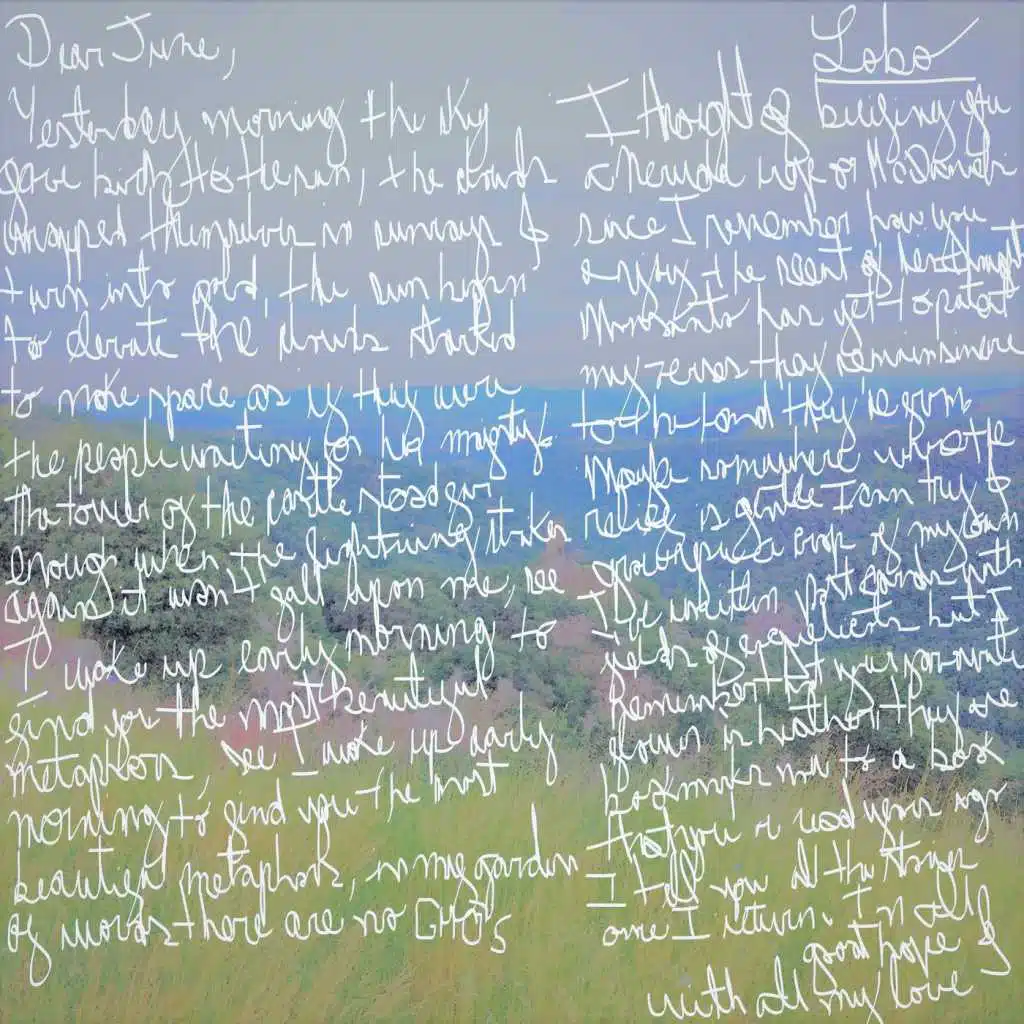 Dear June,
Yesterday morning the sky
gave birth to the sun, the clouds
wrapped themselves in sunrays &
turn into gold, the sun began
to elevate the clouds started
to make space as if they were
the people waiting for his mighty.
The tower of the castle stood
enough when the lightning strikes
again it won't fall upon me, see
I woke up early morning to
find you the most beautiful
metaphors, see I woke up early
morning to find you the most
beautiful metaphors, in my garden
of words there are no GMO's
Lobo
I thought of buying you
a or McDaniels
since I remember how you
enjoy the scent of
Monsanto has yet to patent
my they remain sincere
to the land they're from,
Maybe somewhere where the
relief is gentle I can try to
a crop of my own
I've written post cards with
fields of but I
Remember that your favourite
flower is heather, they are
bookmarks now to a book
that you read years ago
I tell you all the things
once I return. In all
good hope &
with all my love